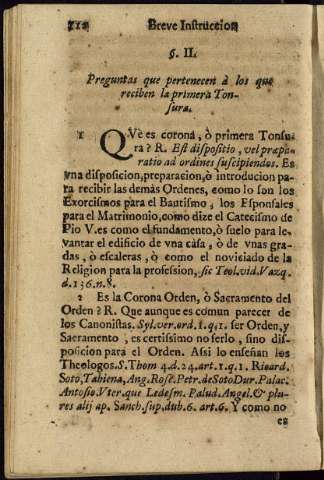 712 Breve Instruccion
§. II.
Preguntas que pertenecen à los que
reciben la primera Ton-
sura.
1 QVè es corona, ò primera Tonsu-
ra? R. Est dispositio, vel præpa-
ratio ad ordines suscipiendos. Es
vna disposicion, preparacion, ò introducion pa-
ra recibir las demàs Ordenes, como lo son los
Exorcismos para el Bautismo, los Esponsales
para el Matrimonio, como dize el Catecismo de
Pio V. es como el fundamento, ò suelo para le-
vantar el edificio de vna casa, ò de vnas gra-
das, ò escaleras, ò como el noviciado de la
Religion para la profession, sic Teol. vid. Vazq.
d. 136. n. 8.
2 Es la Corona Orden, ò Sacramento del
Orden? R. Que aunque es comun parecer de
los Canonistas. Syl. ver. ord. 1. q. 1. ser Orden, y
Sacramento, es certissimo no serlo, sino dis-
posicion para el Orden. Assi lo enseñan los
Theologos. S. Thom 4. d. 24. art. 1. q. 1. Ricard.
Soto, Tabiena, Ang. Rose. Petr. de Soto Dur. Palac.
Antosio. Vter. que Ledesm. Palud. Angel. & plu-
res alij ap. Sanch. sup. dub. 6. art. 6. Y como no
es